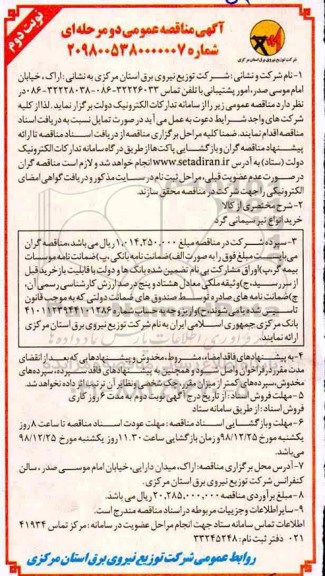 نوبت دوم
آگهی مناقصه عمومی دو مرحله ای
شماره ۲۰۹۸۰۰۵۳۸۰۰۰۰۰۰۷
شرکت توزیع نیروی برق استان مرکزی
۱-نام شرکت و نشانی : شرکت توزیع نیروی برق استان مرکزی به نشانی : اراک، خیابان
امام موسی صدر، امور پشتیبانی با تلفن تماس ۳۲۲۲۶۰۳۳-۰۸۶ - ۳۲۲۲۸۰۳۸-۰۸۶ در
نظر دارد مناقصه عمومی زیر را از سامانه تدارکات الکترونیک دولت برگزار نماید. لذا از کلیه
شرکت های واجد شرایط دعوت به عمل می آید در صورت تمایل نسبت به دریافت اسناد
مناقصه اقدام نمایند. ضمنا کلیه مراحل برگزاری مناقصه از دریافت اسناد مناقصه تا ارائه
پیشنهاد مناقصه گران و بازگشایی پاکت ها از طریق درگاه سامانه تدارکات الکترونیک
دولت (ستاد) به آدرس www.setadiran.ir انجام خواهد شد و لازم است مناقصه گران
در صورت عدم عضویت قبلی، مراحل ثبت نام در سایت مذکور و دریافت گواهی امضای
الکترونیکی را جهت شرکت در مناقصه محقق سازند.
۲- شرح مختصری از کالا
خرید انواع تیر سیمانی گرد
۳- سپرده شرکت در مناقصه مبلغ ۱,۰۱۴,۲۵۰,۰۰۰ ریال می باشد، مناقصه گران
می بایست مبلغ فوق را به صورت الف) ضمانت نامه بانکی، پ) ضمانت نامه موسسات
بیمه گر،ب) اوراق مشارکت بی نام تضمین شده بانک ها و دولت با قابلیت بازخرید قبل
از سررسید، ج) وثیقه ملکی معادل هشتاد و پنج درصد ارزش کارشناسی رسمی آن،
چ) ضمانت نامه های صادره توسط صندوق های ضمانت دولتی که به موجب قانون
تاسیس شده یا می شوند، ح) واریز وجه به حساب شماره ۴۱۰۱۱۲۳۹۴۴۱۰۱۲۸۶
بانک مرکزی جمهوری اسلامی ایران به نام شرکت توزیع نیروی برق استان مرکزی
ارائه نمایند.
۴- به پیشنهادهای فاقد امضاء، مشروط، مخدوش و پیشنهادهایی که بعد از انقضای
مدت مقرر در فراخوان واصل شود و همچنین به پیشنهادهای فاقد سپرده، سپرده های
مخدوش، سپرده های کمتر از میزان مقرر، چک شخصی و نظایر آن ترتیب اثر داده نخواهد شد.
۵- مهلت فروش اسناد : از تاریخ درج آگهی نوبت دوم به مدت ۶ روز کاری
فروش اسناد : از طریق سامانه ستاد
۶- مهلت و بازگشایی اسناد مناقصه : مهلت عودت اسناد مناقصه تا ساعت ۸ روز
یکشنبه مورخ ۹۸/۱۲/۲۵ و زمان بازگشایی ساعت ۱۱.۳۰ روز یکشنبه مورخ ۹۸/۱۲/۲۵
می باشد.
۷- آدرس محل برگزاری مناقصه: اراک، میدان دارایی، خیابان امام موسی صدر ، سالن
کنفرانس شرکت توزیع نیروی برق استان مرکزی .
۸- مبلغ برآوردی مناقصه ۲۰,۲۸۵,۰۰۰,۰۰۰ ریال می باشد.
۹- سایر اطلاعات و جزییات مربوطه در اسناد مناقصه مندرج است.
اطلاعات تماس سامانه ستاد جهت انجام مراحل عضویت در سامانه : مرکز تماس ۴۱۹۳۴
۰۲۱ دفتر ثبت نام : ۳۳۲۴۵۲۴۸
روابط عمومی شرکت توزیع نیروی برق استان مرکزی